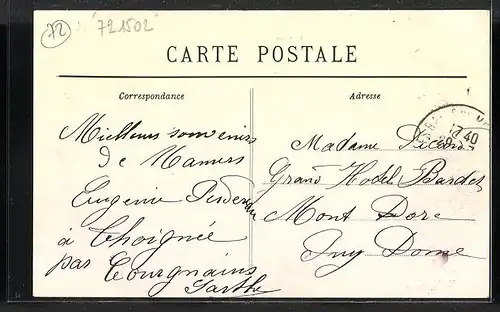 72
721502
CARTE POSTALE
Correspondance
Adresse
17 40
Meilleurs souvenirs
de Mamers
Eugenie
à Thoigné
par Courgains
Sarthe
Madame Picard
Grand Hotel Bardet
Mont Dore
Puy Dome